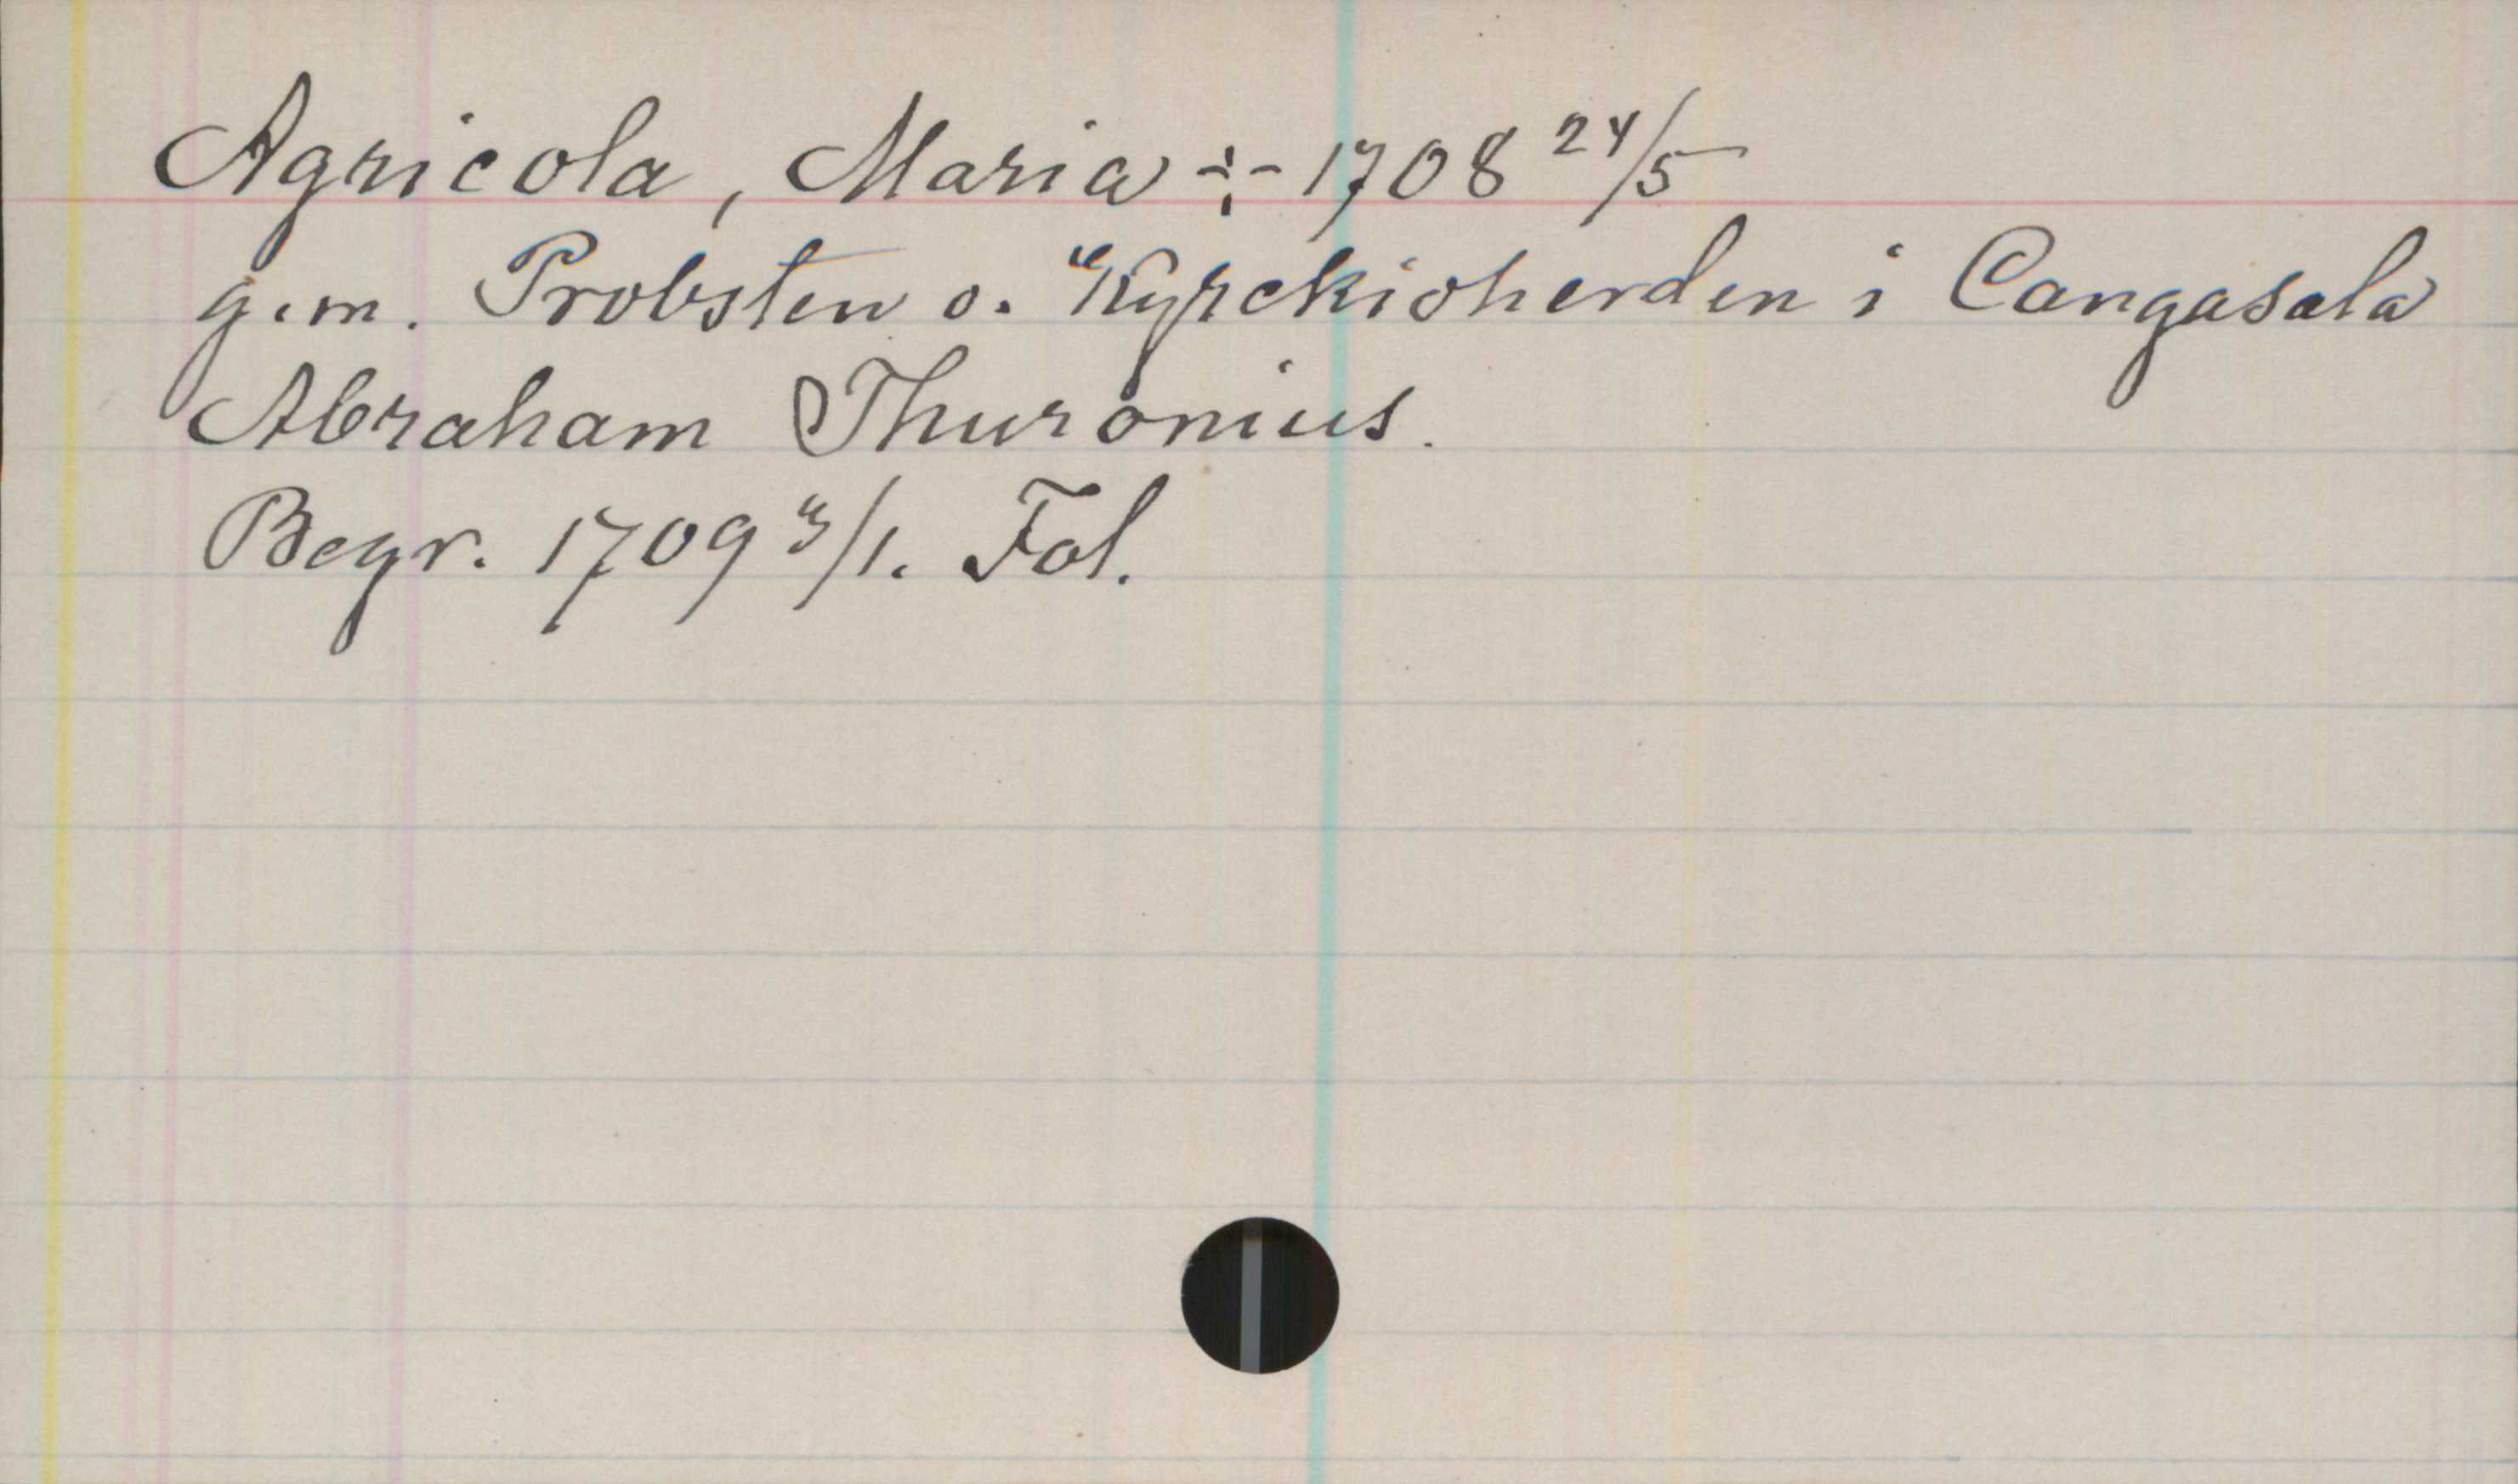 Agricola, Maria ÷ 1708 24/5
g.m. Probsten o. Kyrckioherden i Cangasala
Abraham Thuronius.
Begr. 1709 3/1. Fol.